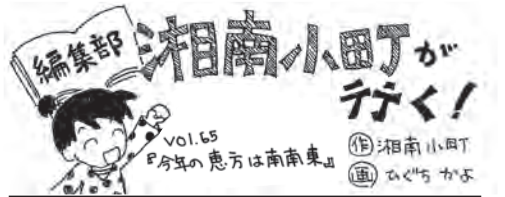 編集部
湘南小町が
行く！
VOl.65
『今年の恵方は南南東』
作 湘南小町
画 ひぐち かよ